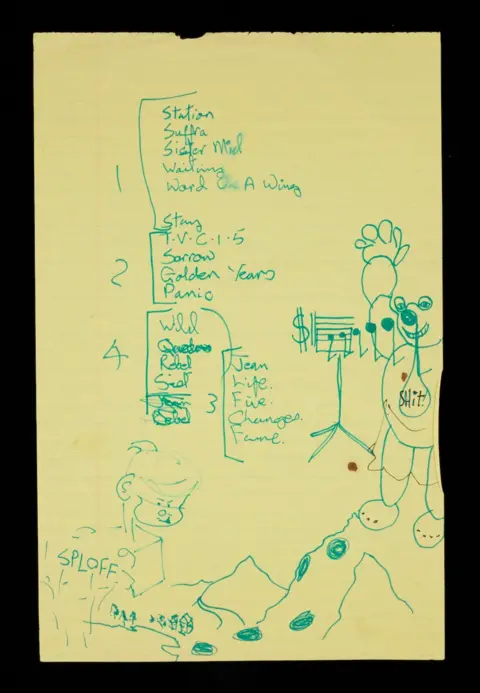 Station
Suffra
Sister Mid
Waiting
Word On A Wing
1
Stay
T.V.C.1.5
Sorrow
Golden Years
Panic
2
Wild
Queen
Rebel
4
3
Jean
Life.
Five.
Changes.
Fame.
$
SHit!
SPLOFF